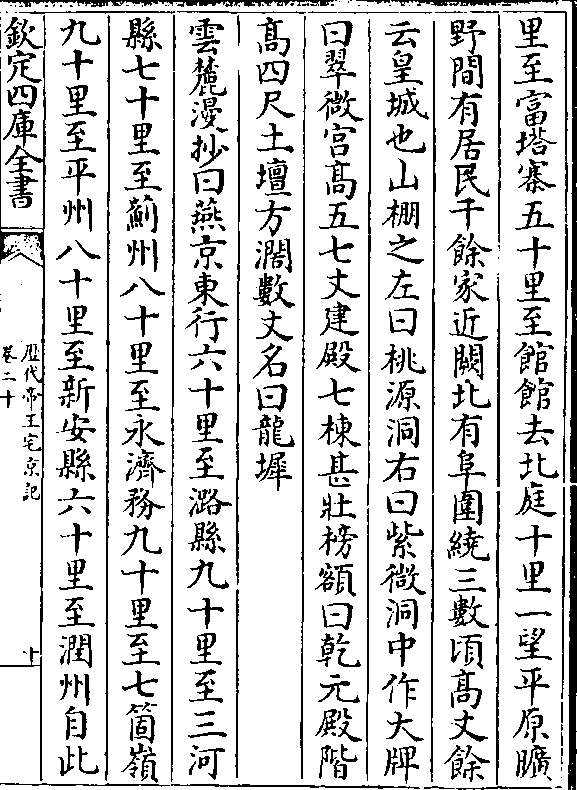 里至富塔寨五十里至館館去北庭十里一望平原曠
野間有居民千餘家近闕北有阜圍繞三數頃髙丈餘
云皇城也山棚之左曰桃源洞右曰紫微洞中作大牌
曰翠微宫髙五七丈建殿七棟甚壯榜額曰乾元殿階
髙四尺土壇方濶數丈名曰龍墀
雲麓漫抄曰燕京東行六十里至潞縣九十里至三河
縣七十里至薊州八十里至永濟務九十里至七箇嶺
九十里至平州八十里至新安縣六十里至潤州自此
欽定四庫全書
歴代帝王宅京記
卷二十
十